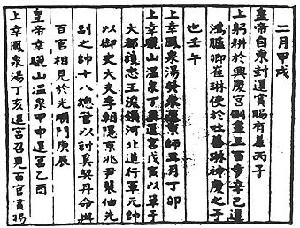 二月甲戌
皇帝自東封還賞賜有差丙子
上躬耕於興慶宮側盡三百步辛己遣
鴻臚卿崔琳使於吐蕃琳神慶之子
也壬午
上幸鳳泉湯癸未還京師五月丁卯
上幸驪山溫泉丁還宮戊寅以單于
大都護忠王浚領河北道行軍元帥
以御史大夫李朝隱京兆尹裴伷先
副之帥十八總管以討奚契丹命與
百官相見於光順門庚辰
皇帝幸驪山溫泉甲申還宮乙酉
上幸鳳泉湯丁亥還宮召見百官賞賜